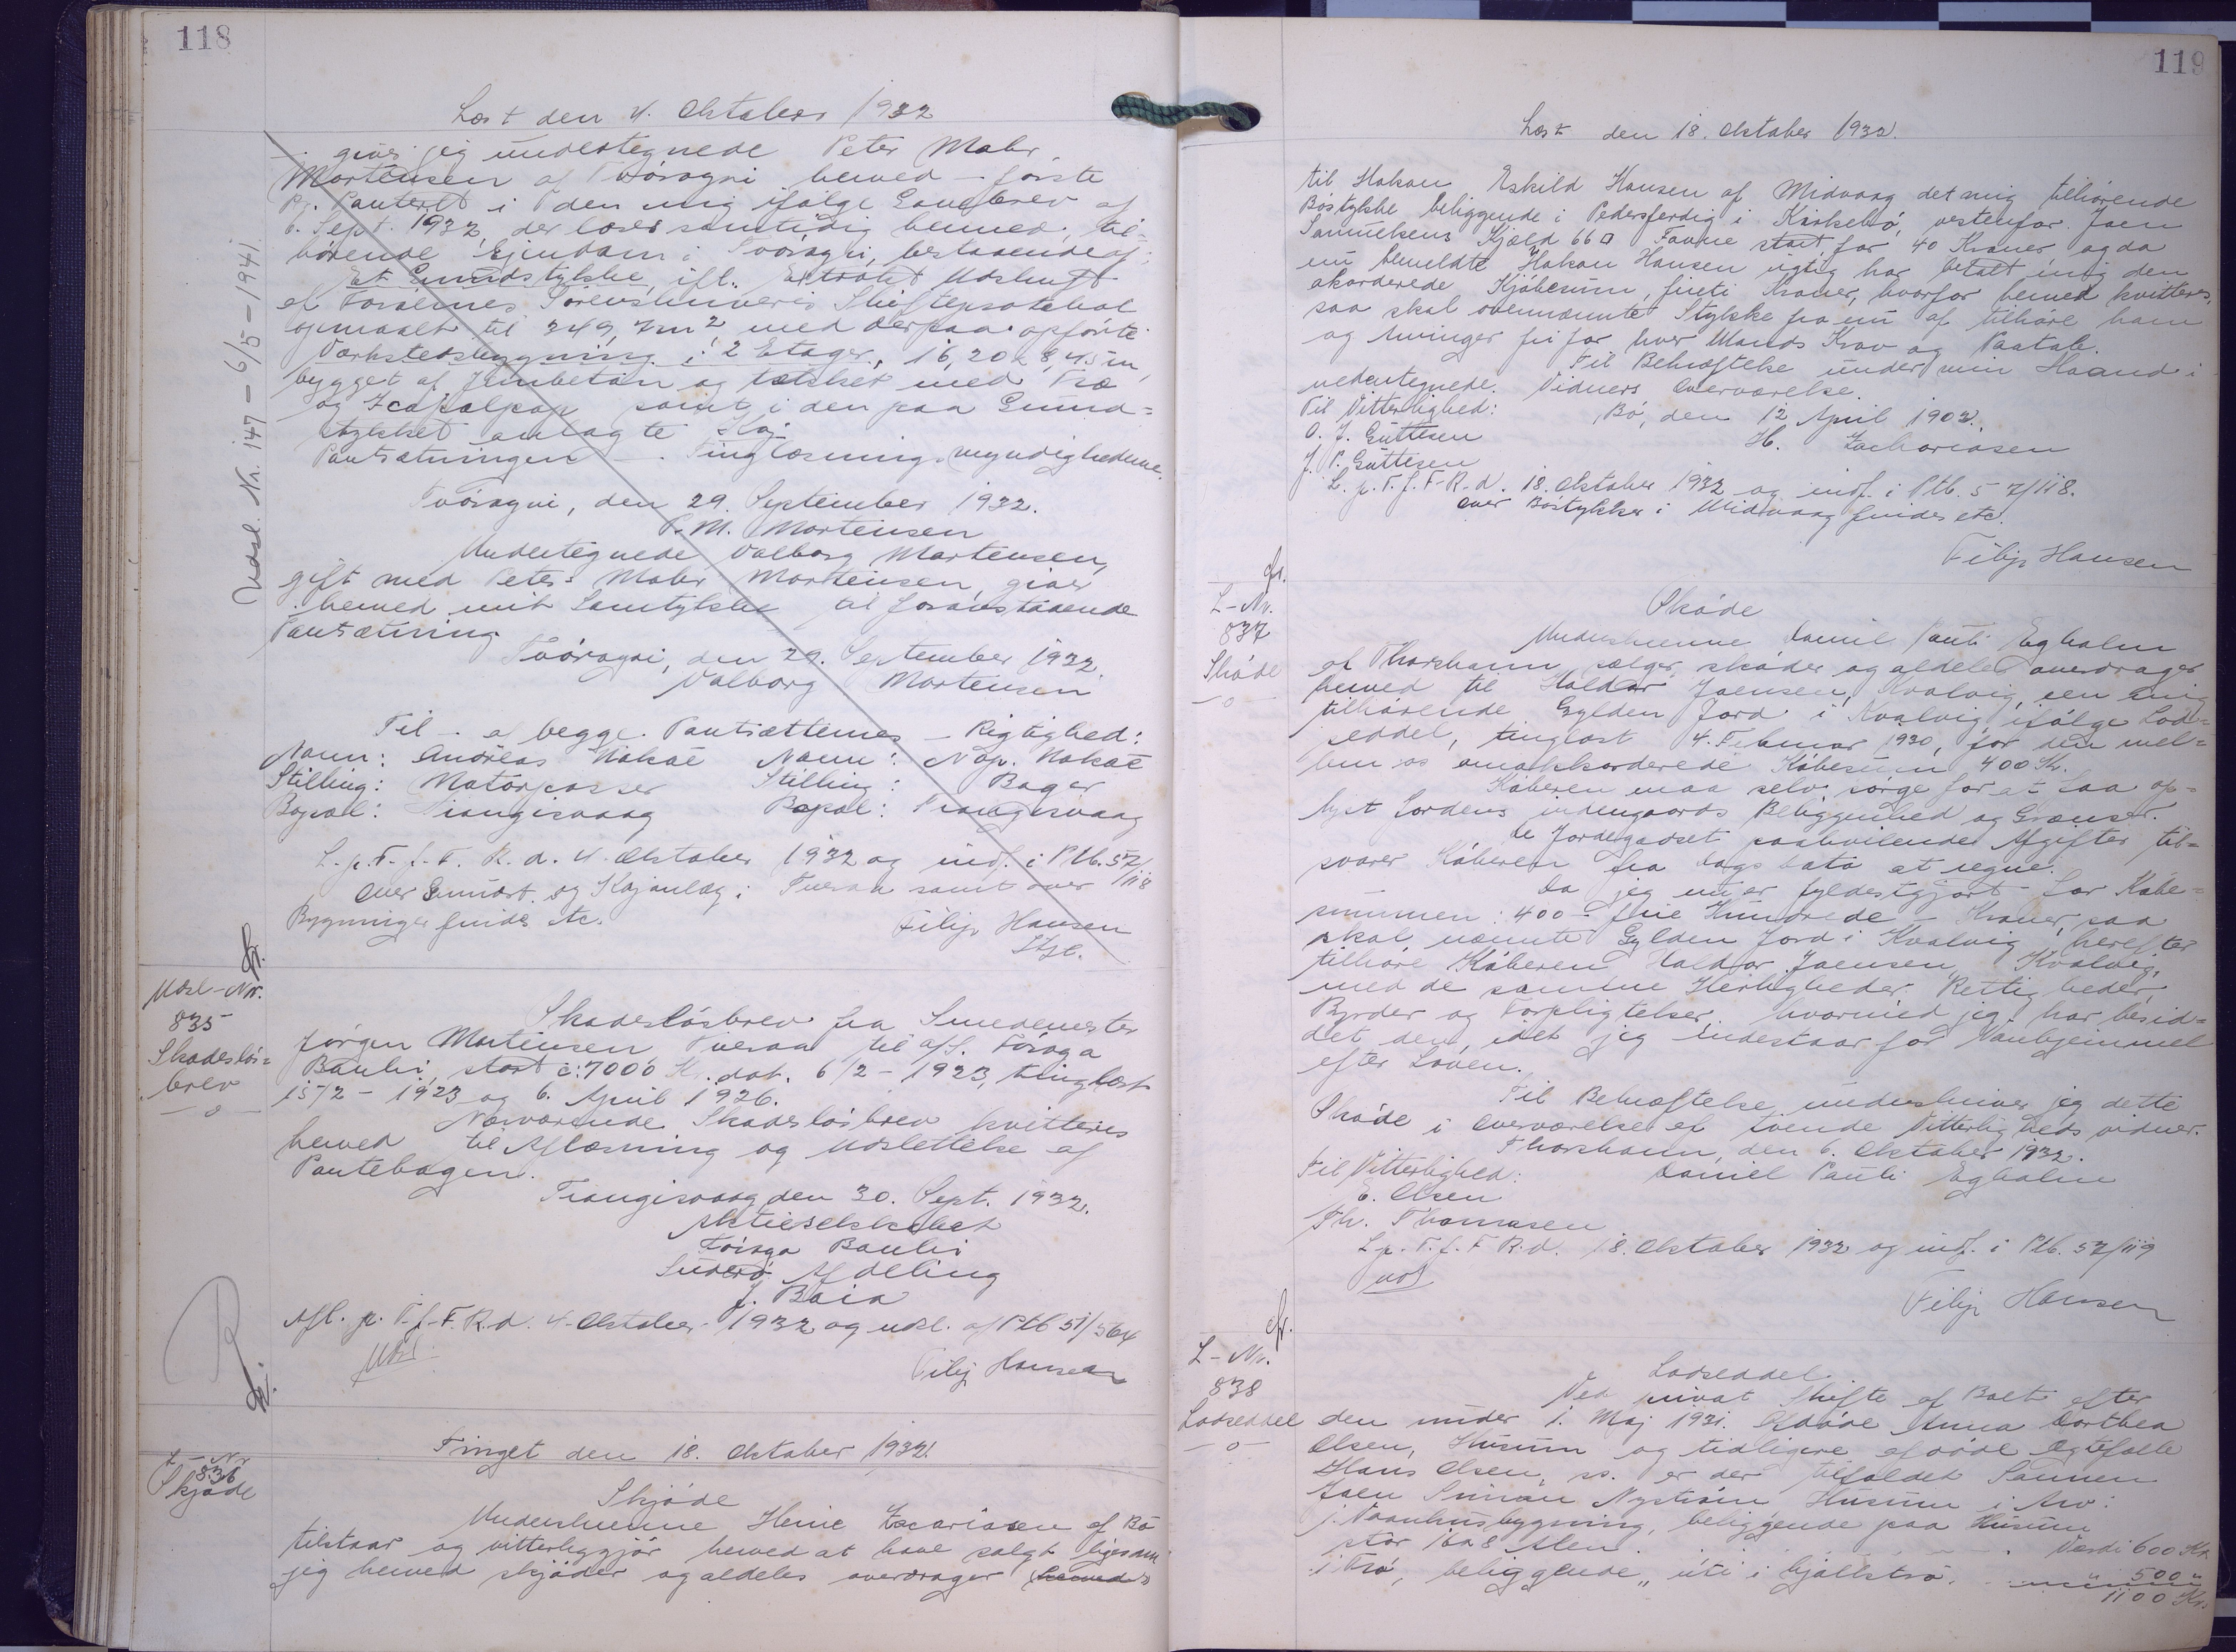 118
Læst den 4. Oktober 1932
giver jeg undertegnede Peter Mohr
Mortensen af Tvöroyri herved – förste
Pr. Panteret i den mig ifölge Gavebrev af
6. Sept. 1932, der læses samtidig hermed, til-
hörende Ejendom i Tvöroyri, bestaaende af:
Et Grundstykke, ifl. Extrakt Udskrift
af Færöernes Sorenskriveris Skifteprotokol
opmaalt til 349,7 m² med derpaa opförte
Værkstedsbygning i 2 Etager, 16,20 x 8,45 m,
bygget af Jernbeton og tækket med Træ
og Icopalpap samt i den paa Grund=
stykket anlagte Kaj
Pantsætningen – . Tinglæsning. myndighederne.
Tvöroyri, den 29. September 1932.
P. M. Mortensen
Undertegnede Valborg Mortensen,
gift med Peter Mohr Mortensen, giver
herved mit Samtykke til foranstaaende
Pantsætning.
Tvöroyri, den 29. September 1932.
Valborg Mortensen
Til – af begge Pantsætternes – Rigtighed:
Navn: Andreas Nolsöe Navn: Nap. Nolsöe
Stilling: Motorpasser Stilling: Bager
Bopæl: Trangisvaag Bopæl: Trangisvaag
L. p. T. f. F. R. d. 4. Oktober 1932 og indf. i Ptb. 57/118
Over Grunst. og Kajanlæg i Tveraa samt over
Bygninger findes etc.
Filip Hansen
Udsl. Nr. 147 – 6/5 – 1941.
Udsl-Nr.
835
Skadeslös=
brev
Skadeslösbrev fra Smedemester
Jörgen Mortensen Tveraa til A/S. Föroya
Banki, stort c: 7000 Kr. dat. 6/2 – 1923, tinglæst
15/2 – 1923 og 6. April 1926.
Nærværende Skadeslösbrev kvitteres
herved til Aflæsning og Udslettelse af
Pantebogen.
Trangisvaag den 30. Sept. 1932.
Aktieselskabet
Föroya Banki
Suderö Afdeling
Afl. p. T. f. F. R. d. 4. Oktober 1932 og udsl. af Ptb 51/564
Udsl.
Filip Hansen
Tinget den 18. Oktober 1932.
L – Nr
836
Skjöde
Skjöde
Underskrevne Heine Zacariasen af Bö
tilstaar og vitterliggjör herved at have solgt ligesom
jeg herved skjöder og aldeles overdrager (herved)
119
Læst den 18. Oktober 1932.
til Hakon Eskild Hansen af Midvaag det mig tilhörende
Böstykke beliggende i Pedersferdig i Kirkebö, vestenfor Joen
Samuelsens Kjæld 66 □ Favne stort for 40 Kroner og da
nu bemeldte Hakon Hansen rigtig har betalt mig den
akorderede Kjöbesum, firti Kroner, hvorfor herved kvitteres,
saa skal ovennævnte Stykke fra nu af tilhöre ham
og Arvinger fri for hver Mands Krav og Paatale.
Til Bekræftelse under min Haand i
nedentegnede Vidners Overværelse.
Til Vitterlighed: Bö, den 12 April 1902.
O. J. Guttesen H. Zachariasen
J. P. Guttesen
L. p. T. f. F. R. d. 18. Oktober 1932 og indf. i Ptb. 57/118.
Over Böstykker i Midvaag findes etc.
Filip Hansen
L – Nr.
837
Sköde
– o –
Sköde
Underskrevne Daniel Pauli Egholm
af Thorshavn, sælger, sköder og aldeles overdrager
herved til Haldor Joensen, Kvalvig, een mig
tilhörende Gylden Jord i Kvalvig ifölge Lod-
seddel, tinglæst 4. Februar 1930, for den mel=
lem os omakkorderede Köbesum 400 Kr.
Köberen maa selv sörge for at faa op=
lyst Jordens indengaards Beliggenhed og Grænser.
De Jordegodset paahvilende Afgifter til=
svarer Köberen fra Dags Dato at regne.
Da jeg nu er fyldestgjort for Köbe=
summen: 400 – fire Hundrede – Kroner, saa
skal nævnte Gylden Jord i Kvalvig herefter
tilhöre Köberen Haldor Joensen, Kvalvig,
med de samme Herligheder, Rettigheder,
Byrder og Forpligtelser, hvormed jeg har besid=
det den, idet jeg indestaar for Vanhjemmel
efter Loven.
Til Bekræftelse underskriver jeg dette
Sköde i Overværelse af tvende Vitterligheds vidner.
Thorshavn, den 6. Oktober 1932.
Til Vitterlighed: Daniel Pauli Egholm
E. Olsen
Th. Thomasen
L. p. T. f. F. R. d. 18. Oktober 1932 og indf. i Ptb. 57/119
Filip Hansen
L – Nr.
838
Lodseddel
– o –
Lodseddel.
Ved privat Skifte af Boet efter
den under 1. Maj 1921. Afdöde Anna Dorthea
Olsen, Husum og tidligere afdöde Ægtefælle
Hans Olsen, ss. er der tilfaldet Sönnen
Joen Simun Nyström Husum i Arv:
1 Vaanhusbygning, beliggende paa Husum
stor 16 x 8 Alen. Værdi 600 Kr.
1 Trö, beliggende „úti i hjallströ. " 500 "
1100 Kr.